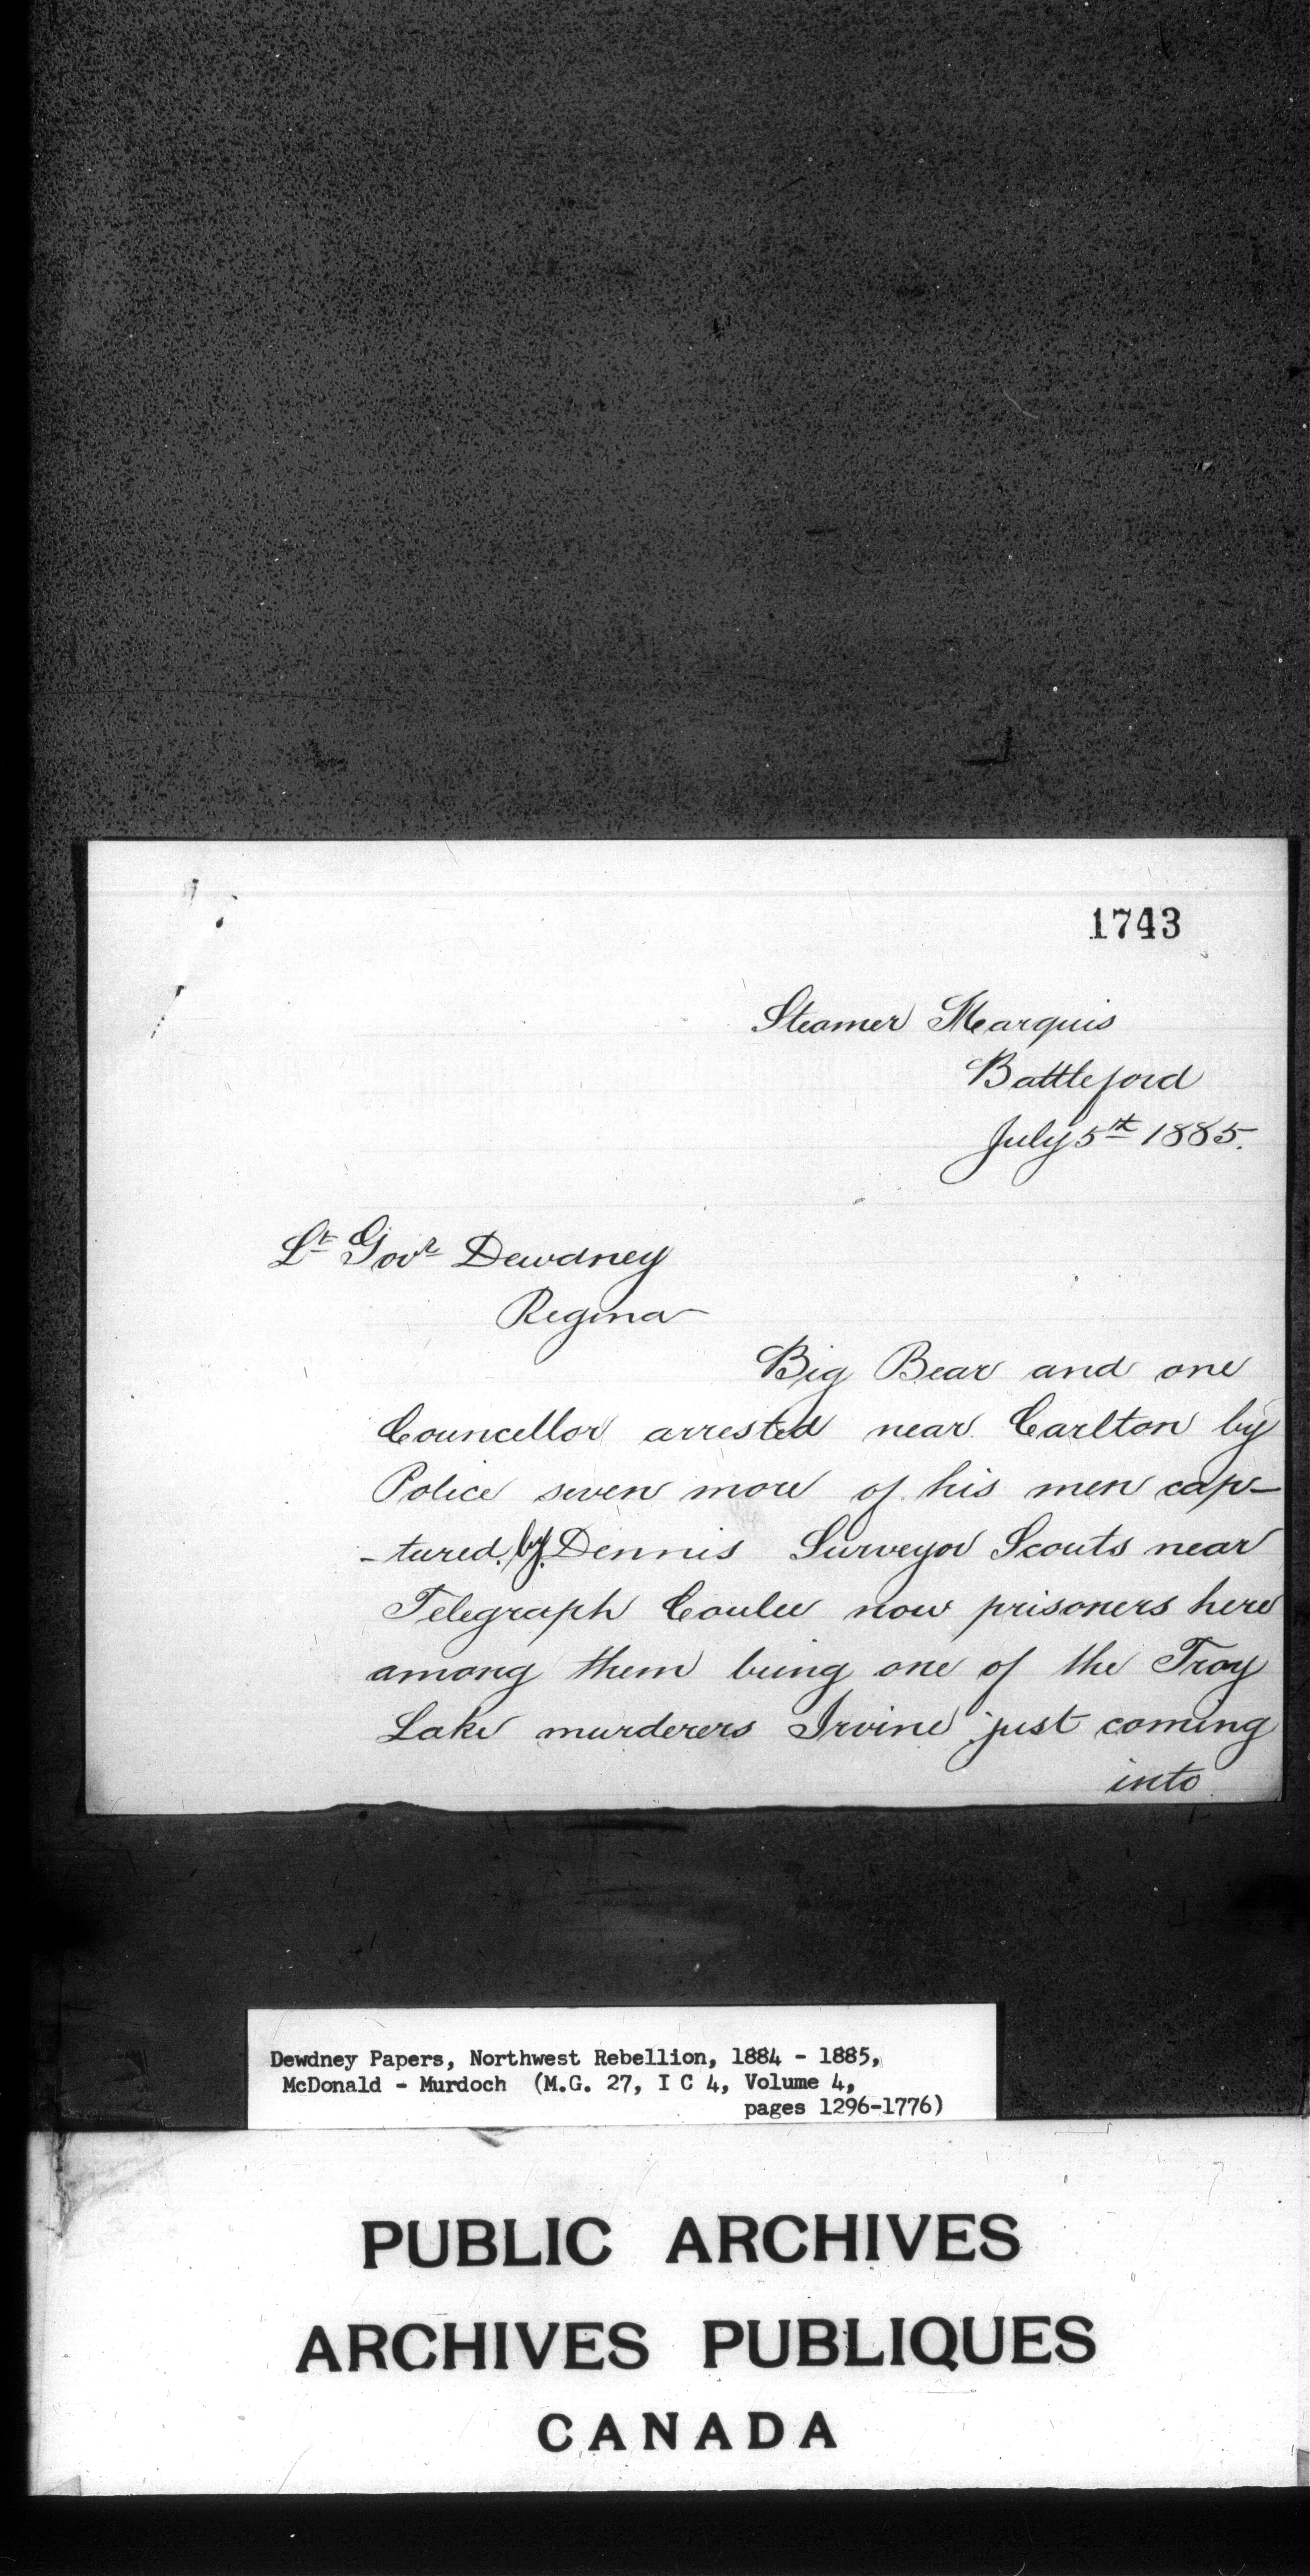 1743
Steamer Marquis
Battleford
July 5th 1885.
Lt Govr Dewdney
Regina
Big Bear and one
Councellor arrested near Carlton by
Police seven more of his men cap-
-tured by Dennis Surveyor Scouts near
Telegraph Coulee now prisoners here
among them being one of the Troy
Lake murderers Irvine just coming
into
Dewdney Papers, Northwest Rebellion, 1884 - 1885,
McDonald - Murdoch (M.G. 27, I C 4, Volume 4,
pages 1296-1776)
PUBLIC ARCHIVES
ARCHIVES PUBLIQUES
CANADA